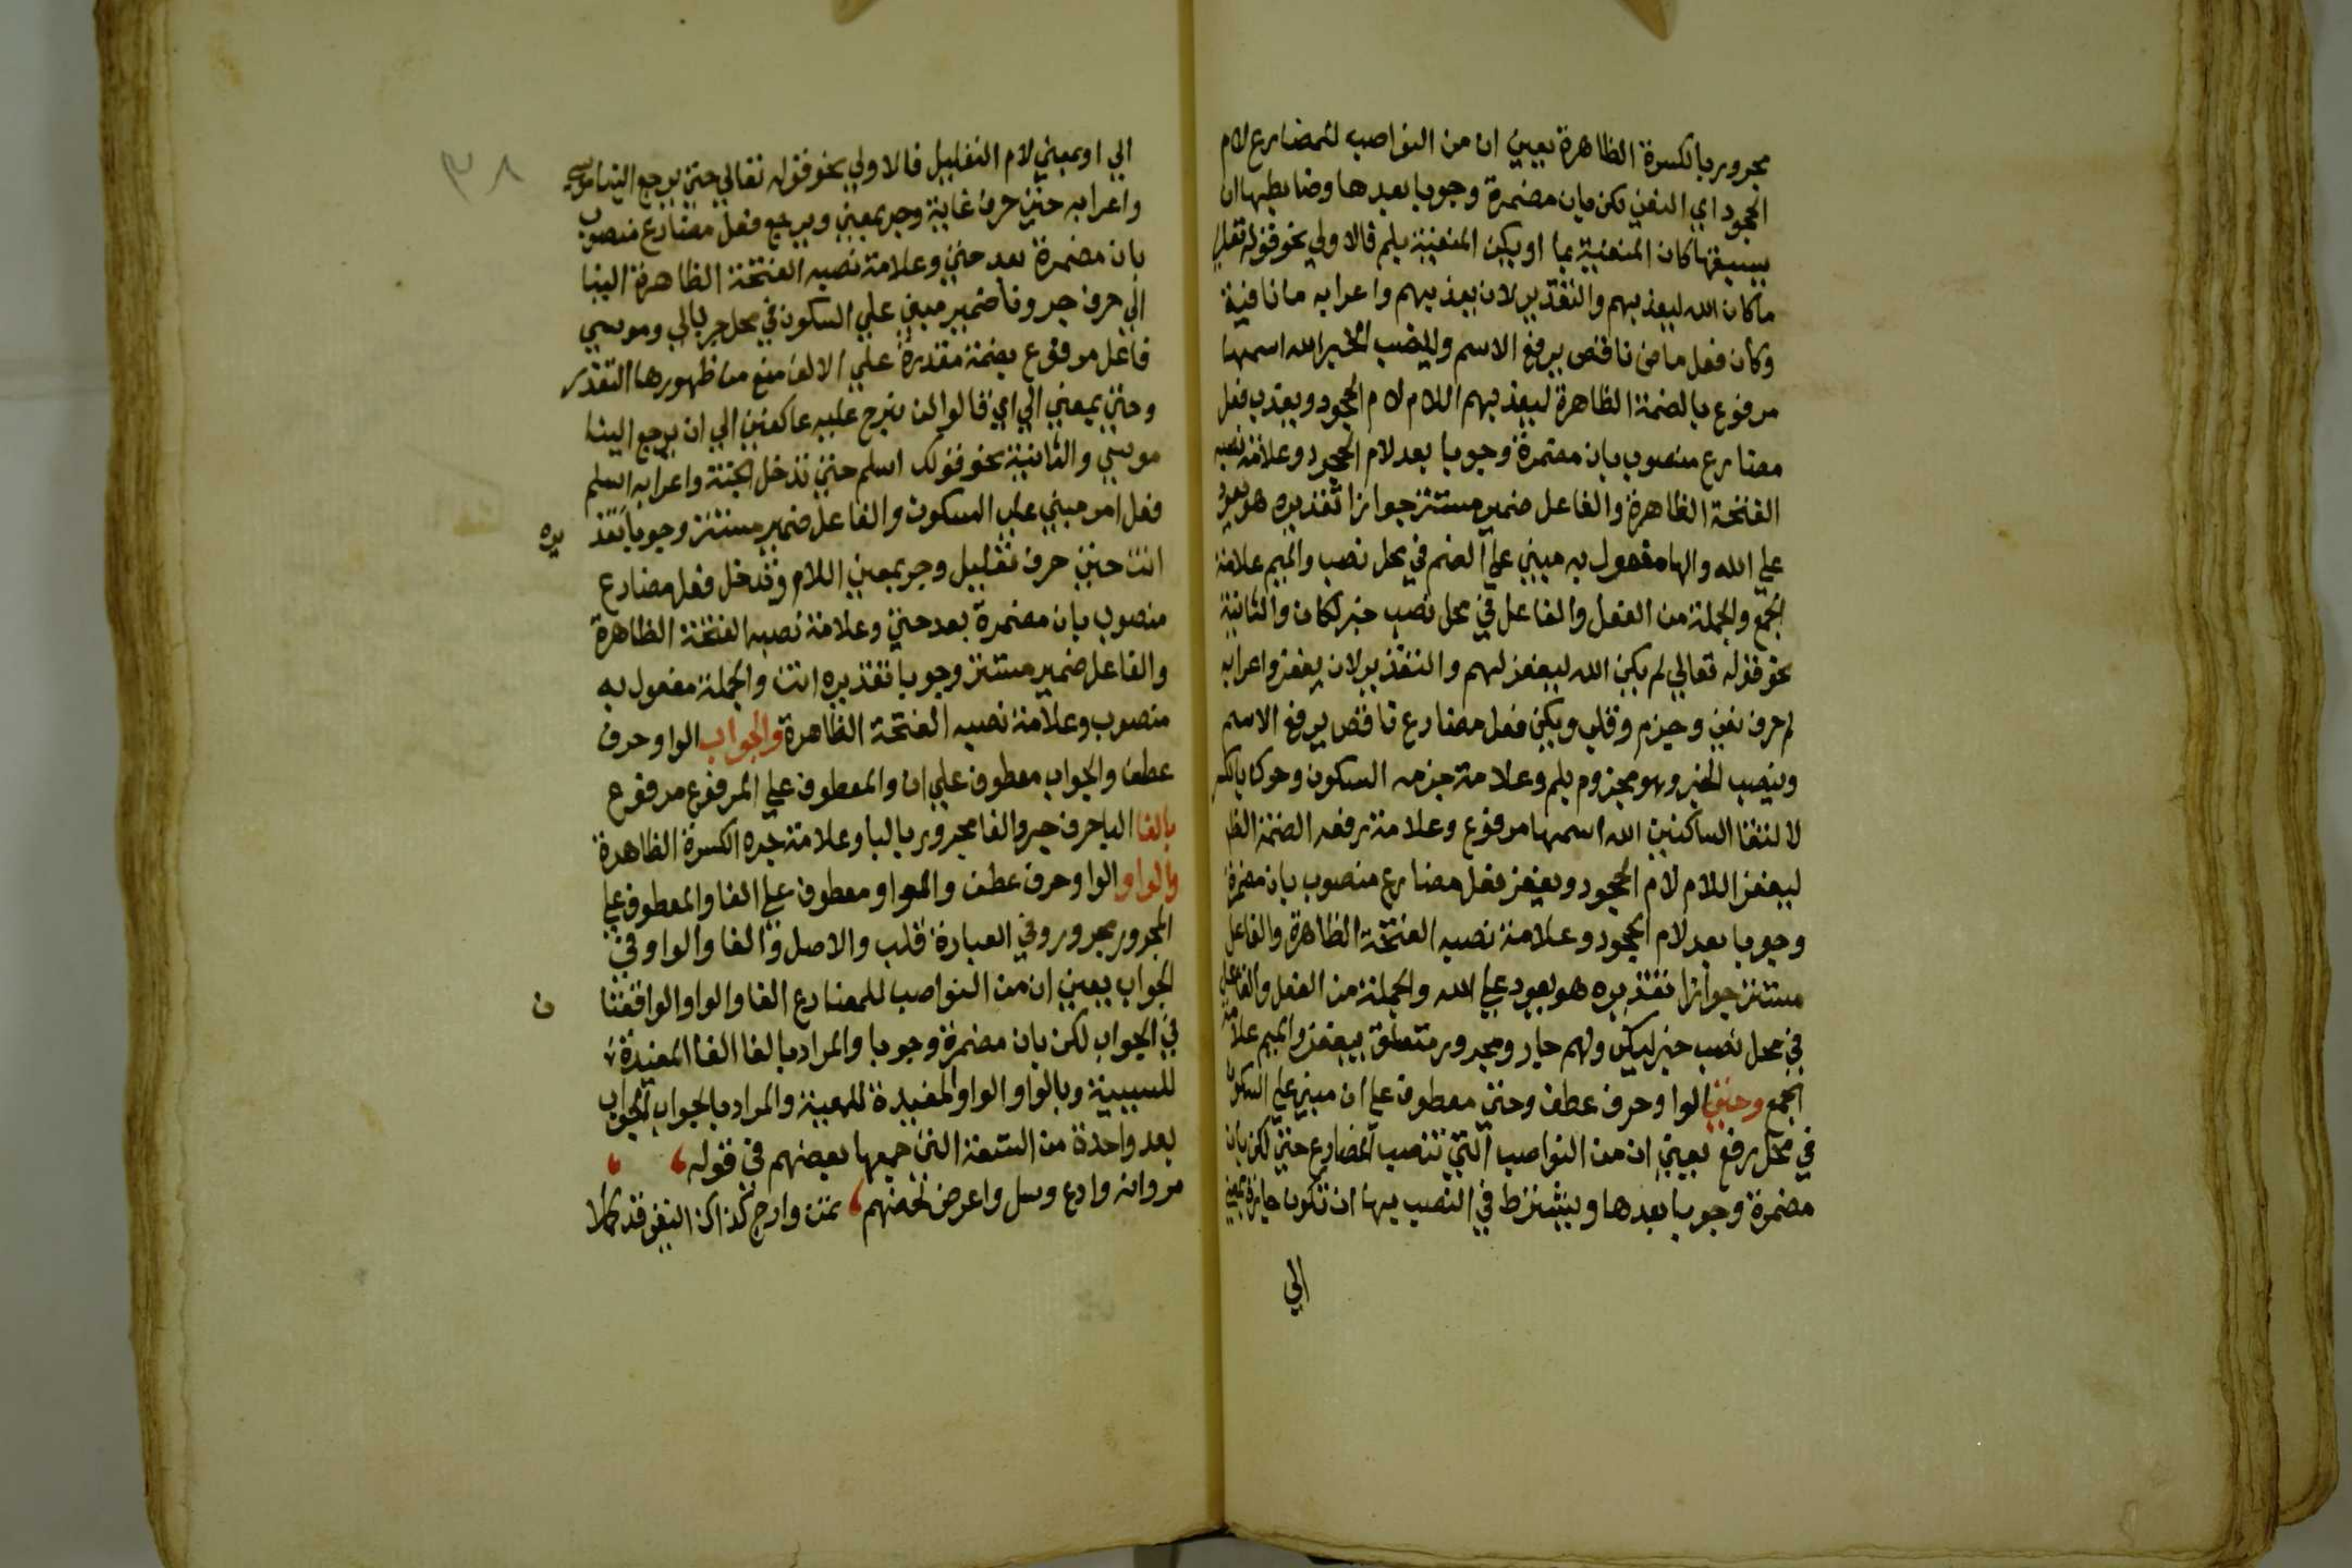 مجرور بالكسرة الظاهرة يعني ان من النواصب للمضارع لام
الجحود اي النفي لكن بان مضمرة وجوبا بعدها وضابطها ان
يسبقها كان المنفية بما او يكن المنفية بلم فالاولي نحو قوله تعالي
ما كان الله ليعذبهم والتقدير لان يعذبهم واعرابه ما نافية
وكان فعل ماض ناقص يرفع الاسم وينصب الخبر الله اسمها
مرفوع بالضمة الظاهرة ليعذبهم اللام لام الجحود ويعذب فعل
مضارع منصوب بان مضمرة وجوبا بعد لام الجحود وعلامة نصبه
الفتحة الظاهرة والفاعل ضمير مستتر جوازا تقديره هو يعود
علي الله والها مفعول به مبني علي الضم في محل نصب والميم علامة
الجمع والجملة من الفعل والفاعل في محل نصب خبر لكان والثانية
نحو قوله تعالي لم يكن الله ليغفر لهم والتقدير لان يغفر واعرابه
لم حرف نفي وجزم وقلب ويكن فعل مضارع ناقص يرفع الاسم
وينصب الخبر وهو مجزوم بلم وعلامة جزمه السكون وحرك بالكسر
لالتقا الساكنين الله اسمها مرفوع وعلامة رفعه الضمة الظا
ليغفر اللام لام الجحود ويغفر فعل مضارع منصوب بان مضمرة
وجوبا بعد لام الجحود وعلامة نصبه الفتحة الظاهرة والفاعل
مستتر جوازا تقديره هو يعود علي الله والجملة من الفعل والفاعل
في محل نصب خبر ليكن ولهم جار ومجرور متعلق بيغفر والميم علامة
الجمع وحتي الواو حرف عطف وحتي معطوف علي ان مبني علي السكون
في محل رفع يعني ان من النواصب التي تنصب المضارع حتي لكن بان
مضمرة وجوبا بعدها ويشترط في النصب بها ان تكون جارة بمعني
الي
٣٨
الي او بمعني لام التعليل فالاولي نحو قوله تعالي حتي يرجع الينا موسي
واعرابه حتي حرف غاية وجر بمعني ويرجع فعل مضارع منصوب
بان مضمرة بعد حتي وعلامة نصبه الفتحة الظاهرة الينا
الي حرف جر ونا ضمير مبني علي السكون في محل جر بالي وموسي
فاعل مرفوع بضمة مقدرة علي الالف منع من ظهورها التعذر
وحتي بمعني الي اي قالوا لن نبرح عليه عاكفين الي ان يرجع الينا
موسي والثانية نحو قولك اسلم حتي تدخل الجنة واعرابه اسلم
فعل امر مبني علي السكون والفاعل ضمير مستتر وجوبا تقد يره
انت حتي حرف تعليل وجر بمعني اللام وتدخل فعل مضارع
منصوب بان مضمرة بعد حتي وعلامة نصبه الفتحة الظاهرة
والفاعل ضمير مستتر وجوبا تقديره انت والجملة مفعول به
منصوب وعلامة نصبه الفتحة الظاهرة والجواب الواو حرف
عطف والجواب معطوف علي ان والمعطوف علي المرفوع مرفوع
بالفا الباحرف جر والفا مجرور بالبا وعلامة جره الكسرة الظاهرة
والواو الواو حرف عطف والواو معطوف علي الفا والمعطوف علي
المجرور مجرور وفي العبارة قلب والاصل والفا والواو في
الجواب يعني ان من النواصب للمضارع الفا والواو الواقعتا ن
في الجواب لكن بان مضمرة وجوبا والمراد بالفا الفا المفيدة
للسببية وبالواو الواو المفيدة للمعية والمراد بالجواب الجواب
بعد واحدة من التسعة التي جمعها بعضهم في قوله
مر وانه وادع وسل واعرض لحضهم تمن وارج كذاك النفي قد كملا